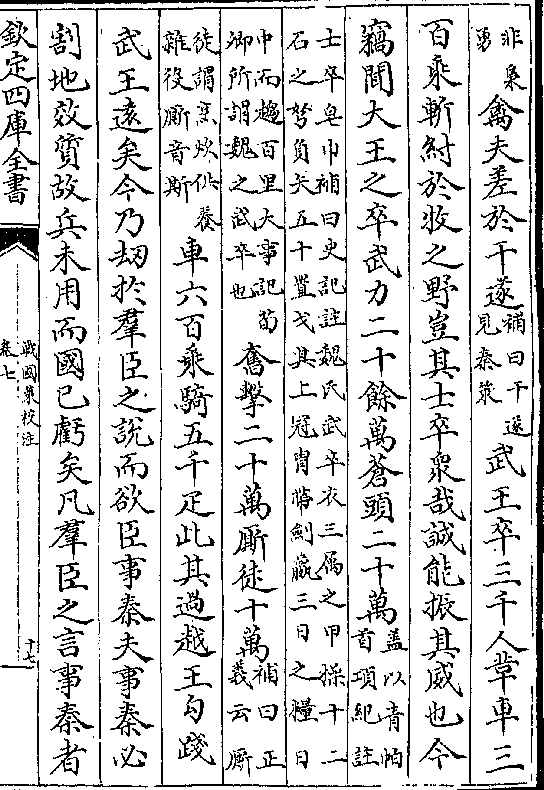 非梟
勇
禽夫差於干遂
補曰干遂
見秦策
武王卒三千人革車三
百乘斬紂於牧之野豈其士卒衆哉誠能振其威也今
竊聞大王之卒武力二十餘萬蒼頭二十萬
盖以青帕
首項紀註
士卒皂巾補曰史記註魏氏武卒衣三屬之甲操十二
石之弩負矢五十置戈其上冠胄帶劍贏三日之糧日
中而趨百里大事記荀
卿所謂魏之武卒也
奮擊二十萬厮徒十萬
補曰正
義云厮
徒謂烹炊供養
雜役厮音斯
車六百乘騎五千疋此其過越王勾踐
武王遠矣今乃刼於羣臣之說而欲臣事秦夫事秦必
割地效質故兵未用而國已虧矣凡羣臣之言事秦者
欽定四庫全書
戰國策校注
卷七
十七